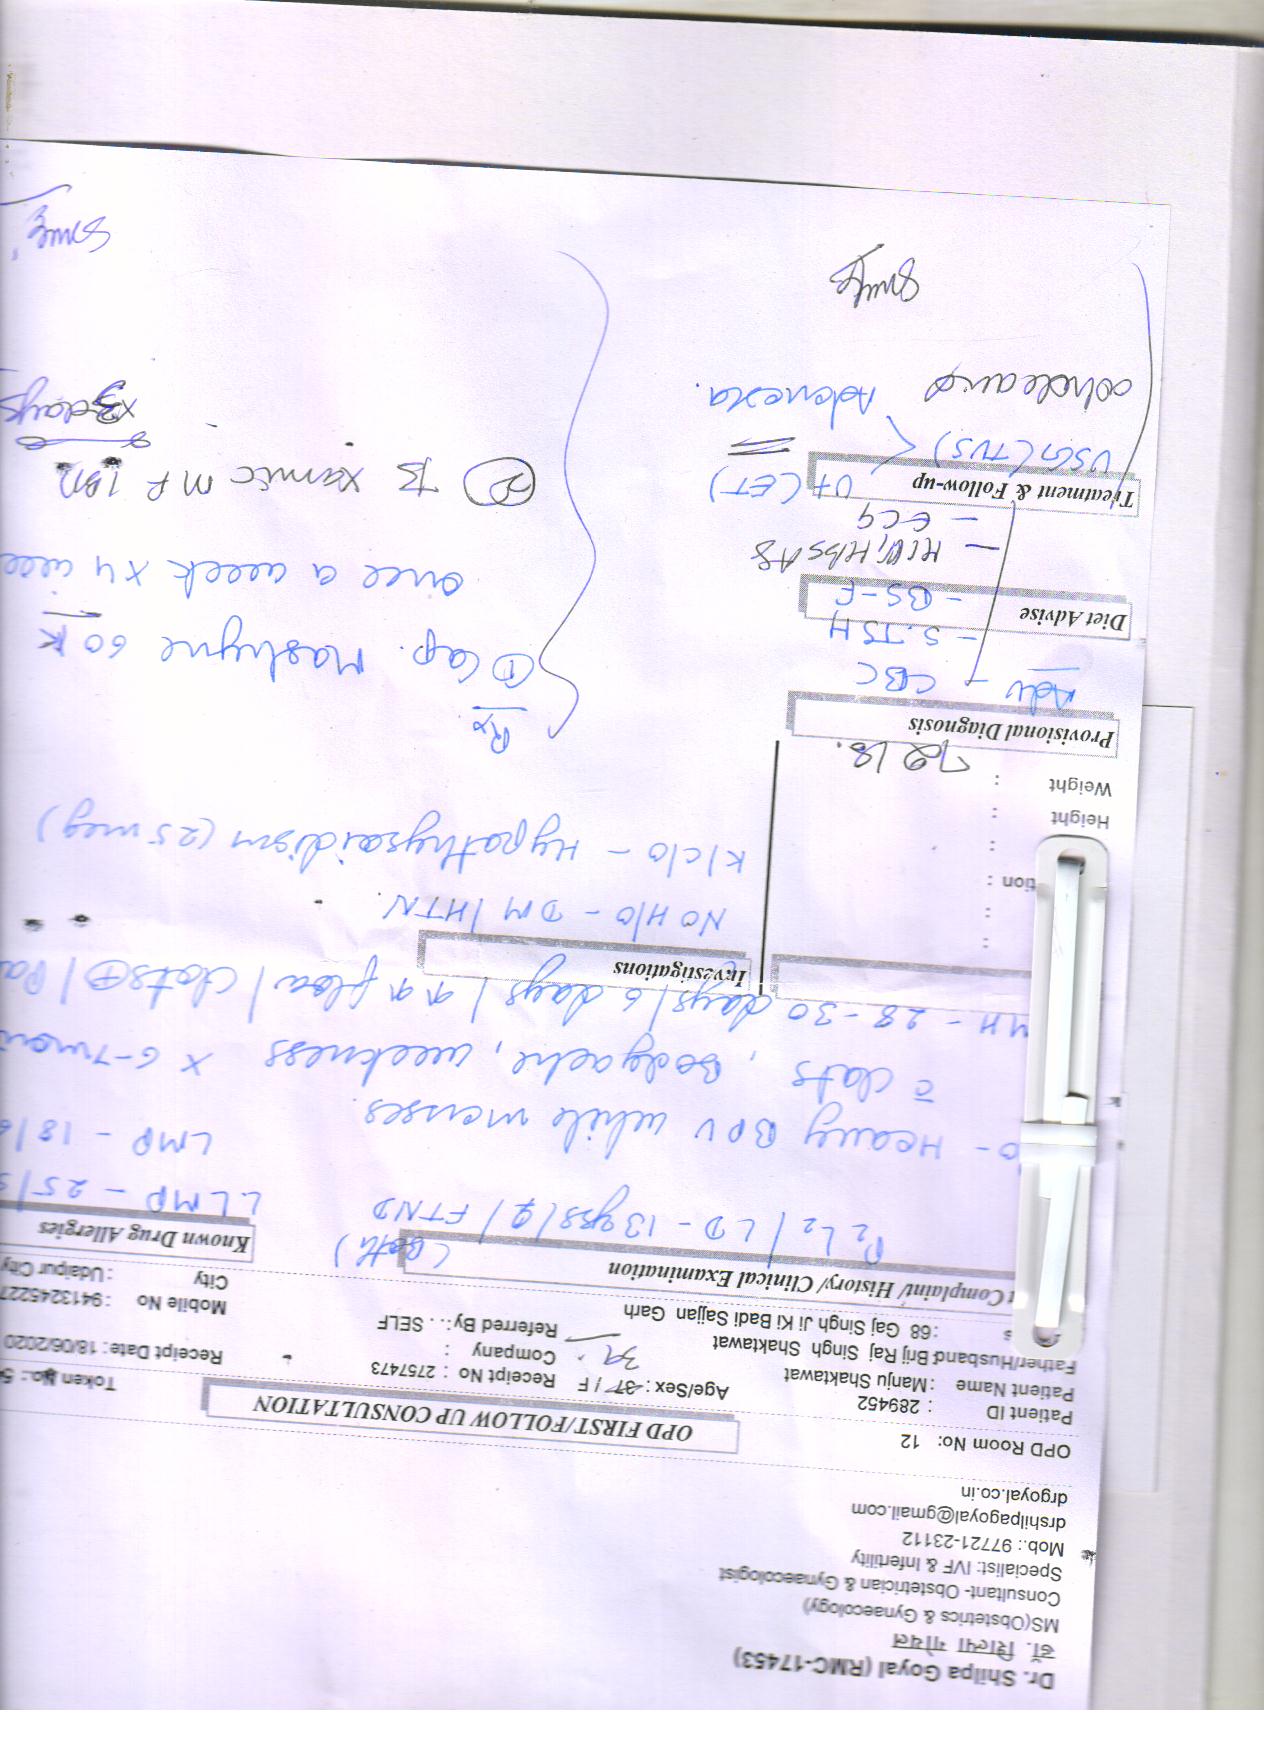 Dr. Shilpa Goyal (RMC-17453)
डॉ. शिल्पा गोयल
MS(Obstetrics & Gynaecology)
Consultant- Obstetrician & Gynaecologist
Specialist: IVF & Infertility
Mob.: 97721-23112
drshilpagoyal@gmail.com
drgoyal.co.in
OPD Room No: 12
OPD FIRST/FOLLOW UP CONSULTATION
Token No.: 5
Patient ID : 289452
Age/Sex: 37 / F Receipt No : 2757473 Receipt Date: 18/06/2020
39
Patient Name : Manju Shaktawat
Company :
Mobile No : 9413245227
Father/Husband Brij Raj Singh Shaktawat
Referred By: . . SELF
City : Udaipur City
s :68 Gaj Singh Ji Ki Badi Sajjan Garh
t Complaint/ History/ Clinical Examination
Known Drug Allergies
P2L2 / LD - 13yrs / ♀ / FTND (Both)
LLMP - 25/5
LMP - 18/6
o - Heavy BPV while menses
c̄ clots, Bodyache, weekness x 6-7mon
MH - 28-30 days / 6 days / ↑↑ flow / clots⊕ / Pa
Investigations
NO H/O - DM / HTN
K/C/O - Hypothyroidism (25 mcg)
tion :
Height :
Weight : 72
Provisional Diagnosis
Adv - CBC
- S.TSH
Diet Advise
- BS-F
- HIV, HbsAg
- ECG
Treatment & Follow-up
USG (TVS) < Ut (ET)
Adenexa.
Rx
① Cap. 60K
once a week x 4 wee
② MF
x 3 days